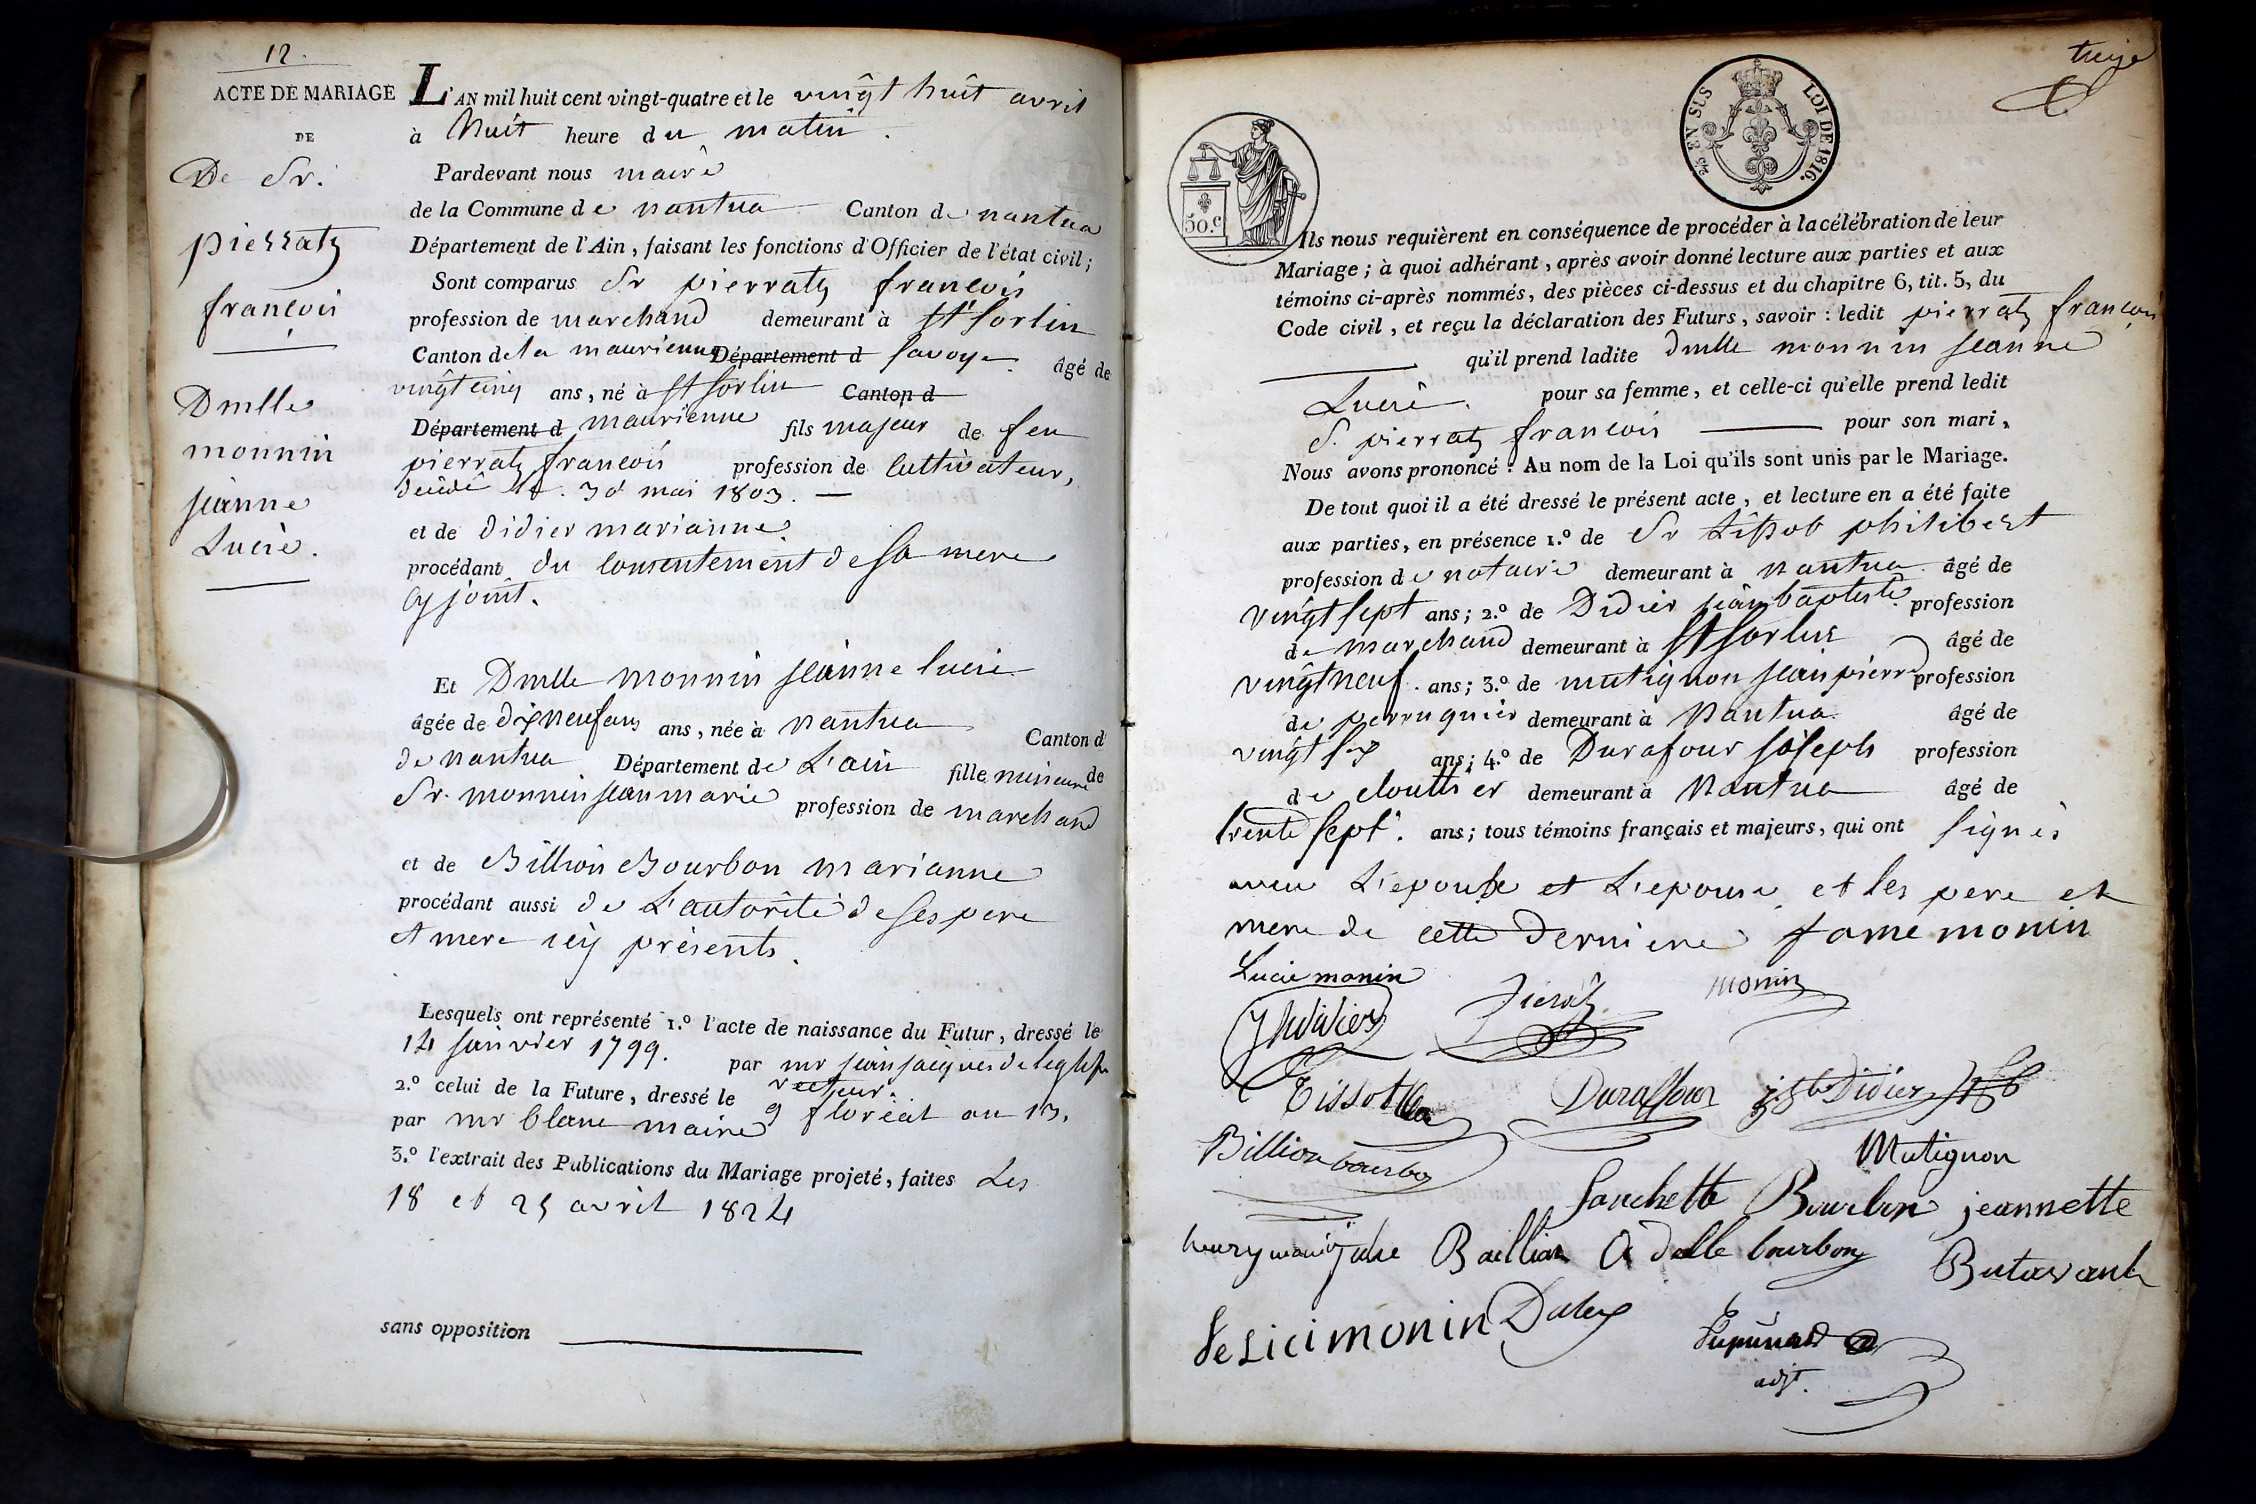 12.
ACTE DE MARIAGE
DE
De Sr.
pierratz
francois
Dmlle
monnin
jeanne
Lucie.
L'AN mil huit cent vingt-quatre et le vingt huit avril
à huit heure du matin.
Pardevant nous maire
de la Commune de nantua Canton de nantua
Département de l'Ain, faisant les fonctions d'Officier de l'état civil;
Sont comparus Sr pierratz francois
profession de marchand demeurant à St Sorlin
Canton de la maurienne Département d Savoye âgé de
vingt cinq ans, né à St Sorlin Canton d
Département d maurienne fils majeur de feu
pierratz francois profession de cultivateur,
décédé le 30 mai 1803.
et de didier marianne.
procédant du consentement de sa mere
cy joint.
Et Dmlle monnin jeanne lucie
âgée de dix neuf ans ans, née à nantua Canton d
de nantua Département de L'ain fille mineure de
Sr. monnin jean marie profession de marchand
et de Billion Bourbon marianne
procédant aussi de L'autorité de ses pere
et mere icy présents.
Lesquels ont représenté 1.º l'acte de naissance du Futur, dressé le
14 janvier 1799. par mr jean jacques
recteur.
2.º celui de la Future, dressé le 9 floréal an 13.
par mr blanc maire
3.º l'extrait des Publications du Mariage projeté, faites Les
18 et 25 avril 1824
sans opposition
treize
50.c
25 EN SUS
LOI DE 1816.
Ils nous requièrent en conséquence de procéder à la célébration de leur
Mariage; à quoi adhérant, après avoir donné lecture aux parties et aux
témoins ci-après nommés, des pièces ci-dessus et du chapitre 6, tit. 5, du
Code civil, et reçu la déclaration des Futurs, savoir : ledit pierratz francois
qu'il prend ladite dmlle monnin jeanne
Lucie. pour sa femme, et celle-ci qu'elle prend ledit
S. pierratz francois pour son mari,
Nous avons prononcé : Au nom de la Loi qu'ils sont unis par le Mariage.
De tout quoi il a été dressé le présent acte, et lecture en a été faite
aux parties, en présence 1.º de Sr Tissot philibert
profession de notaire demeurant à nantua âgé de
vingt sept ans; 2.º de Didier jean baptiste profession
de marchand demeurant à St Sorlin âgé de
vingt neuf ans; 3.º de mutignon jean pierre profession
de perruquier demeurant à Nantua. âgé de
vingt six ans; 4.º de Durafour joseph profession
de cloutier demeurant à Nantua âgé de
trente sept. ans; tous témoins français et majeurs, qui ont signés
avec L'epoux et L'epouse, et les pere et
mere de cette derniere fame monin
Lucie monin
Didier Pieratz monin
Tissot Duraffour Didier
Billion bourbon Mutignon
Fanchette Bourbon jeannette
henry monin julie Baillion Adelle bourbon Butavant
felici monin
adjt.